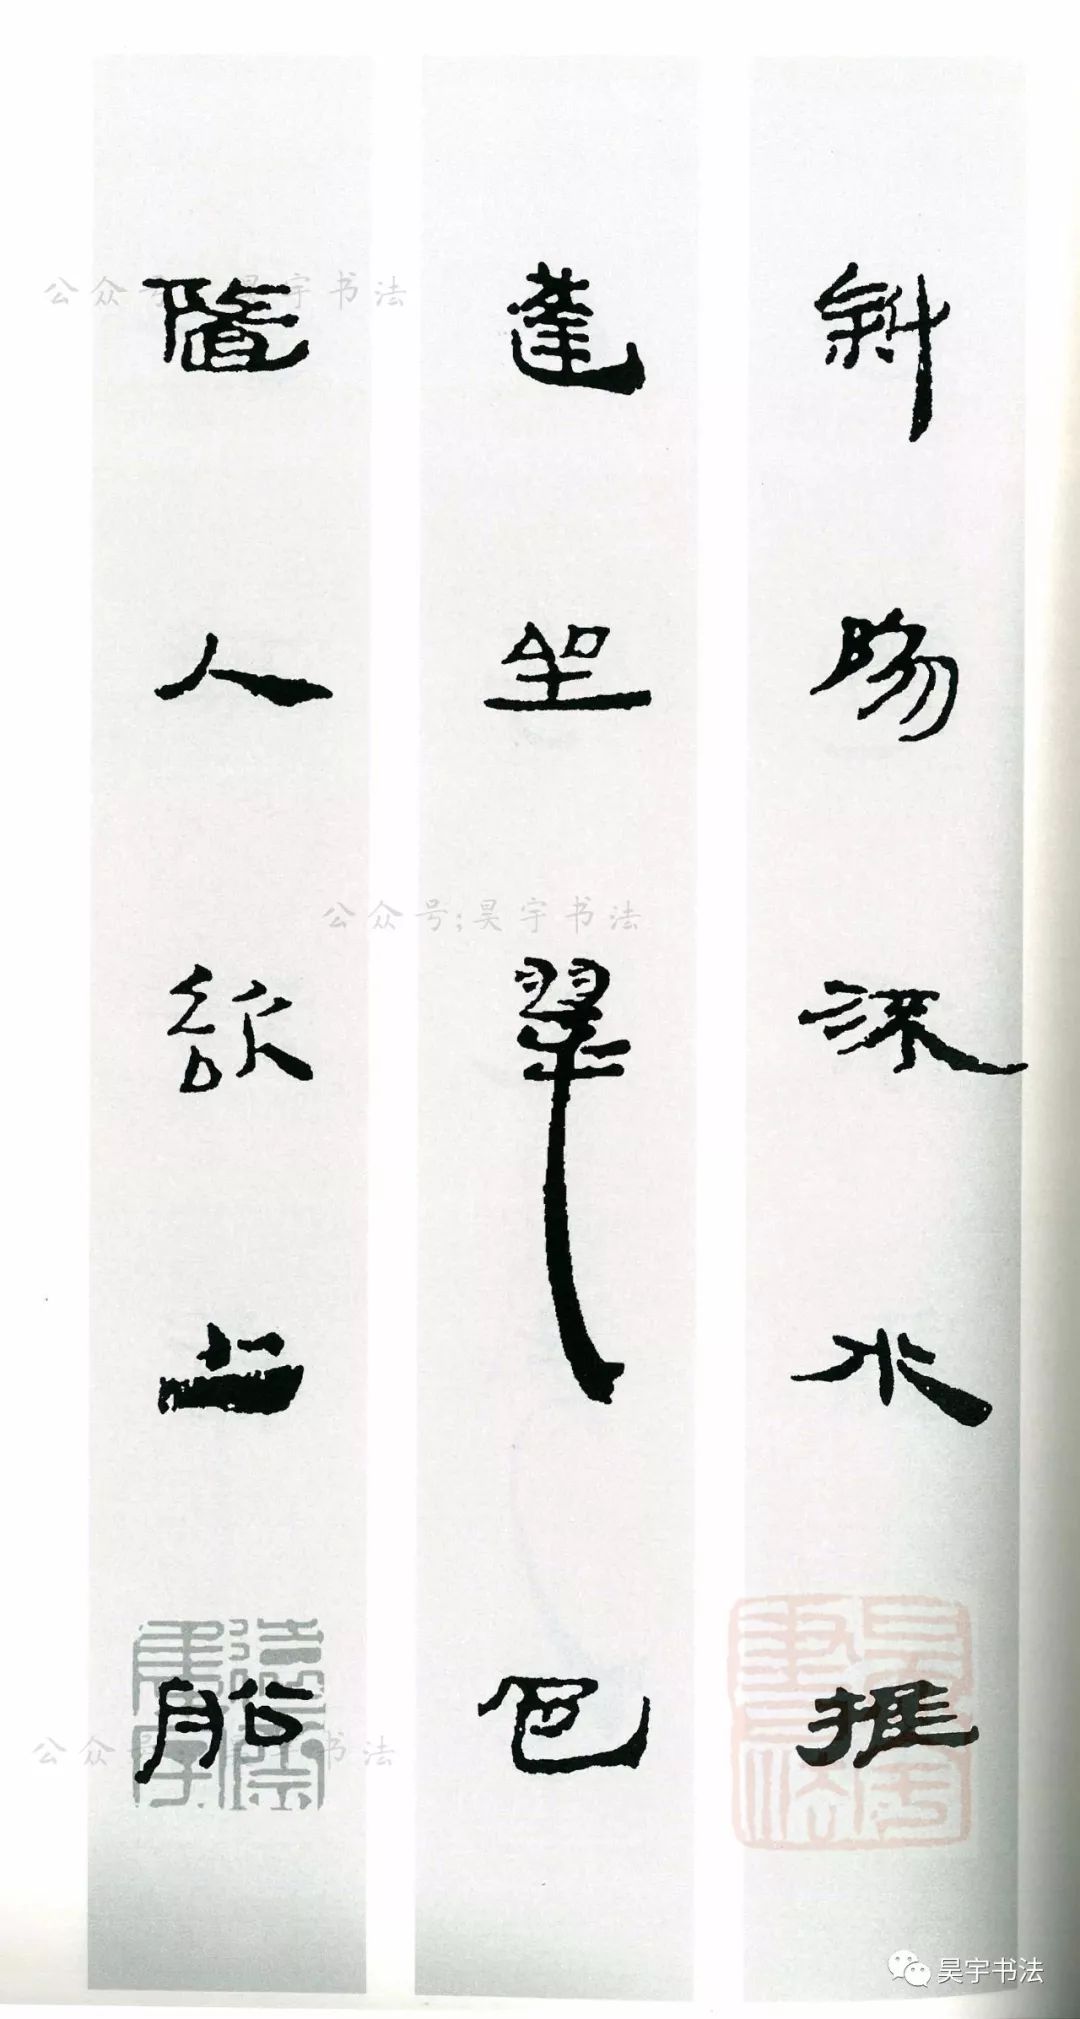 斜陽流水推
蓬坐翠色
隨人欲上船
公众号 昊宇书法
公众号;昊宇书法
公众号 书法
昊宇書法
昊宇书法